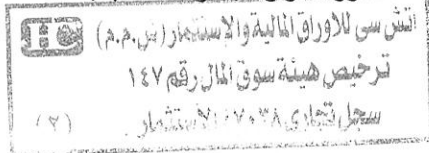 اتش سى للاوراق المالية والإستثمار (ش.م.م) HC
ترخيص هيئة سوق المال رقم ١٤٧
سجل تجارى الأستثمار (٢)